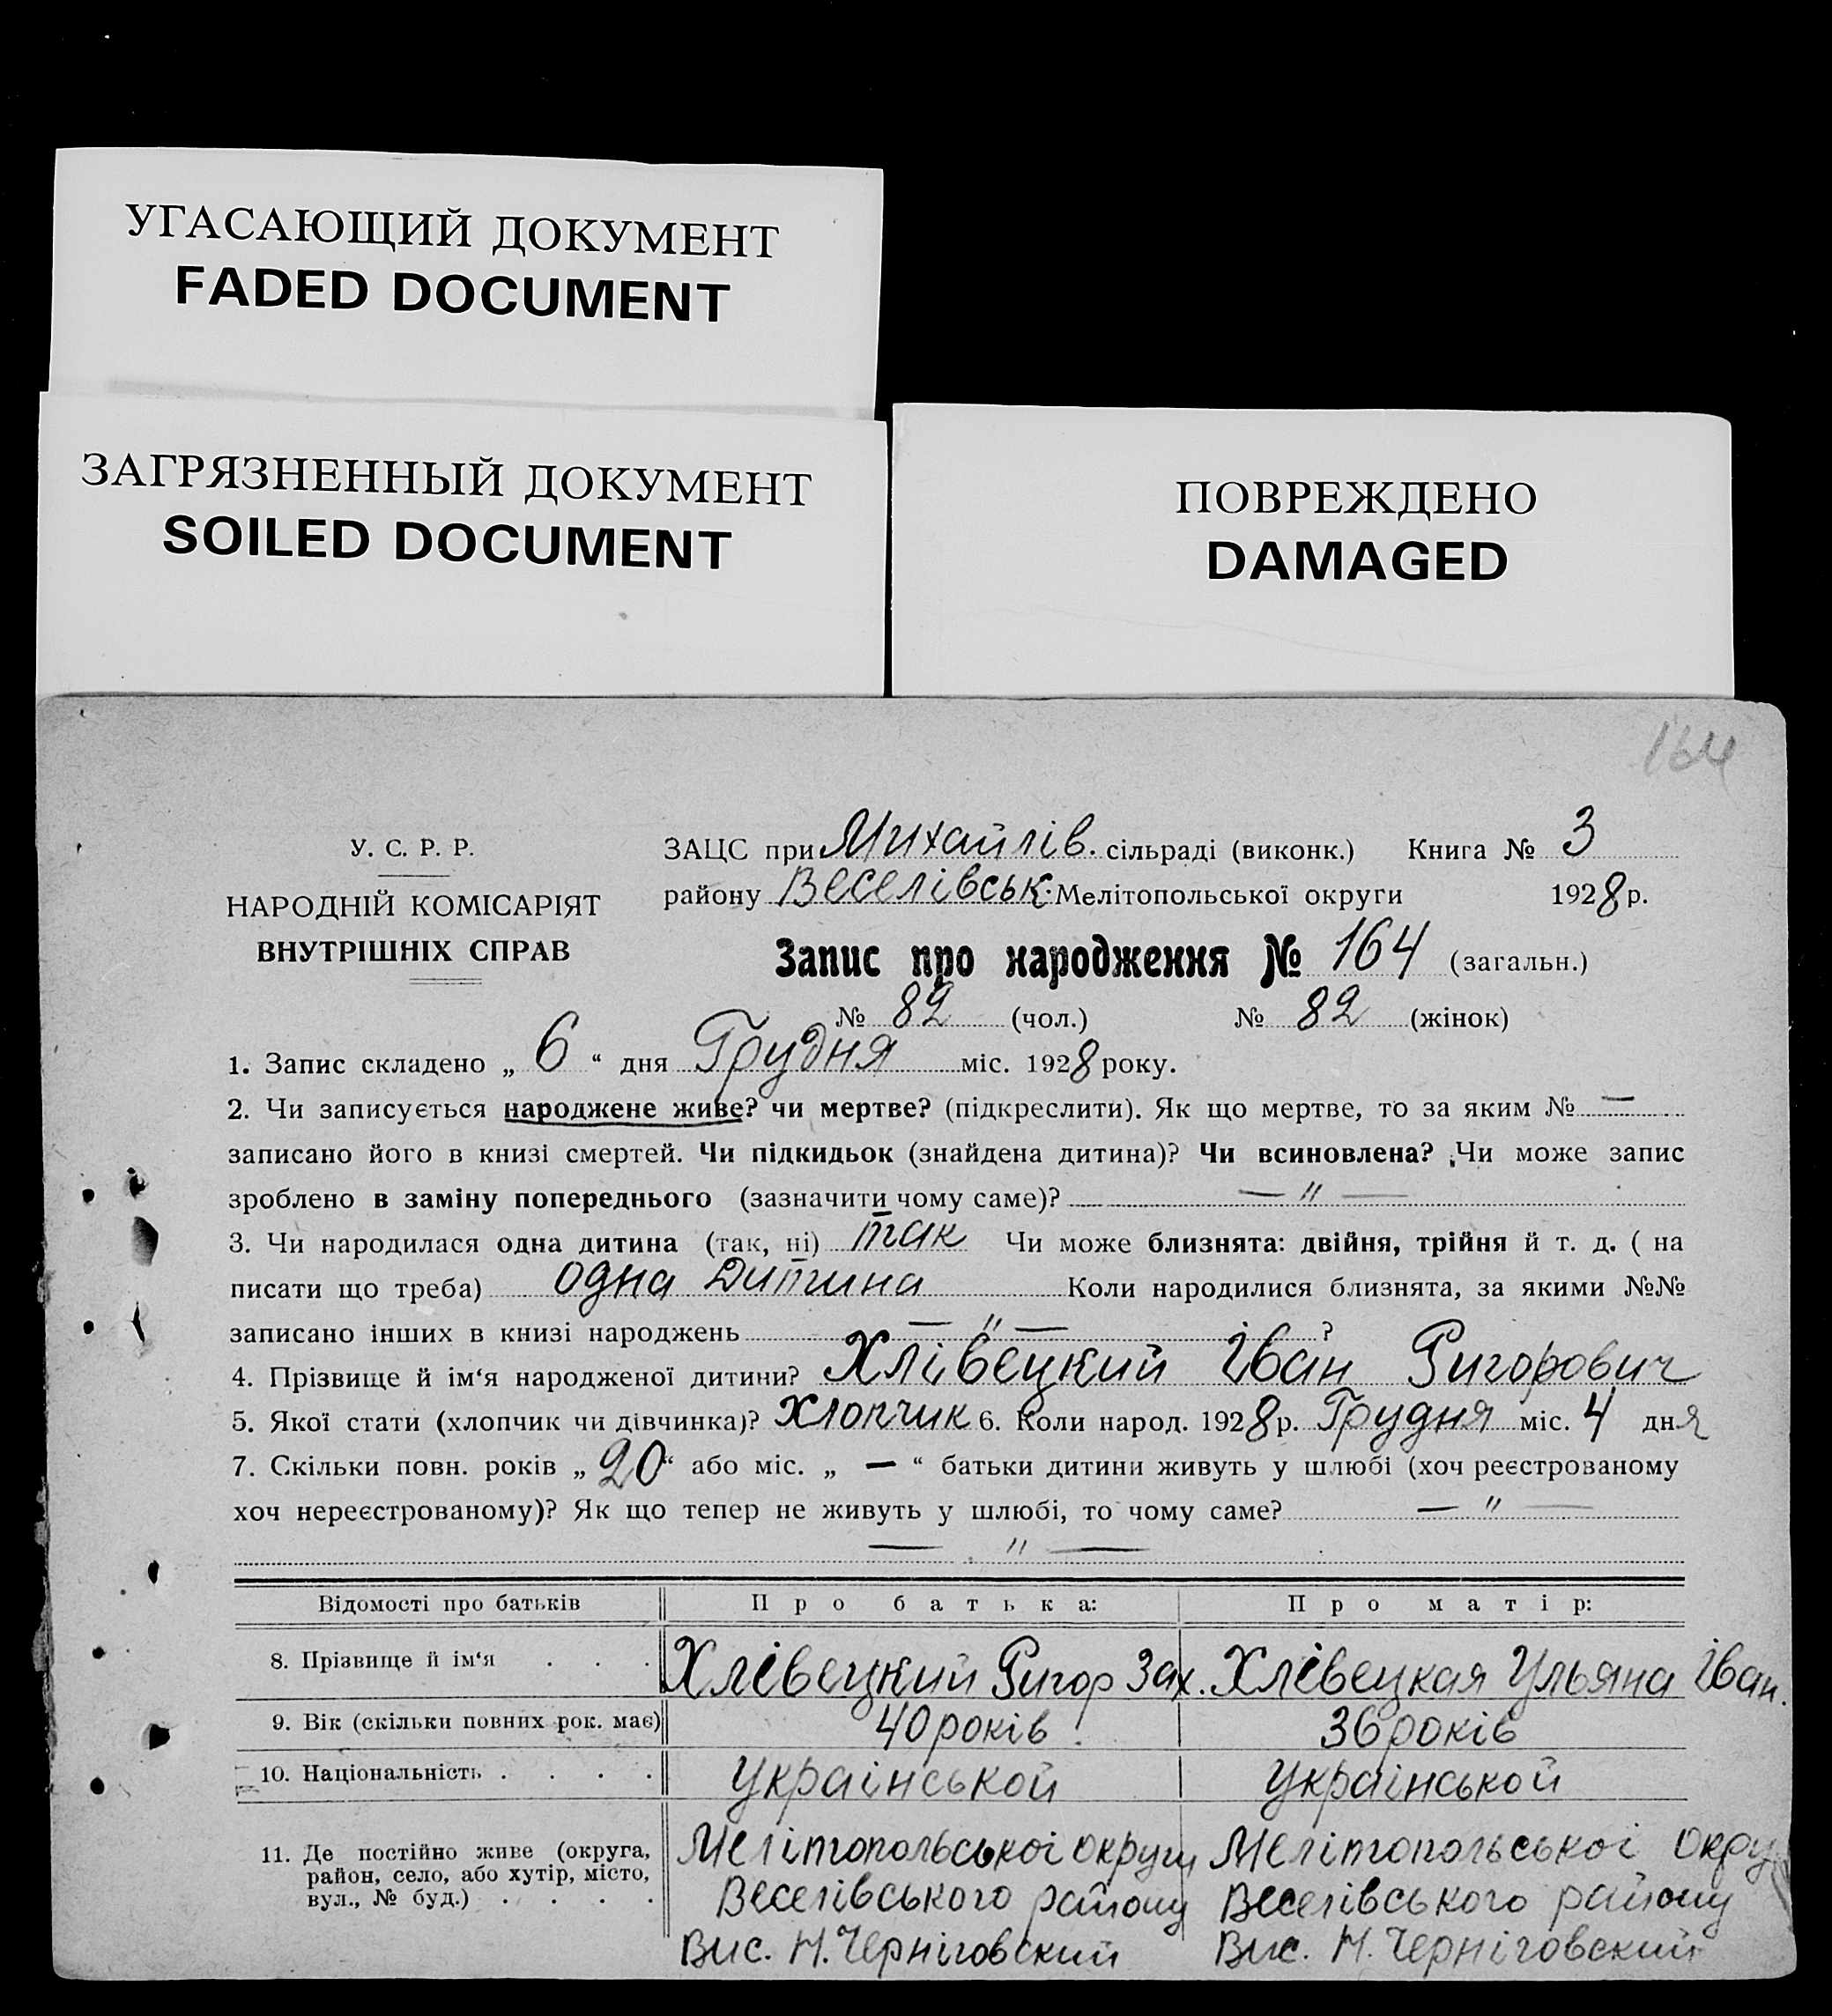 УГАСАЮЩИЙ ДОКУМЕНТ
FADED DOCUMENT
ЗАГРЯЗНЕННЫЙ ДОКУМЕНТ
SOILED DOCUMENT
ПОВРЕЖДЕНО
DAMAGED
164
У. С. Р. Р.
НАРОДНІЙ КОМІСАРІЯТ
ВНУТРІШНІХ СПРАВ
ЗАЦС при Михайлів. сільраді (виконк.) Книга № 3
району Веселівськ. Мелітопольської округи 1928 р.
Запис про народження № 164 (загальн.)
№ 82 (чол.) № 82 (жінок)
1. Запис складено „ 6 “ дня Грудня міс. 1928 року.
2. Чи записується народжене живе? чи мертве? (підкреслити). Як що мертве, то за яким № —
записано його в книзі смертей. Чи підкидьок (знайдена дитина)? Чи всиновлена? Чи може запис
зроблено в заміну попереднього (зазначити чому саме)? — " —
3. Чи народилася одна дитина (так, ні) так Чи може близнята: двійня, трійня й т. д. ( на
писати що треба) одна дитина Коли народилися близнята, за якими №№
записано інших в книзі народжень — " — ?
4. Прізвище й ім‘я народженої дитини? Хлівецкий Іван Григорович
5. Якої стати (хлопчик чи дівчинка)? Хлопчик 6. Коли народ. 1928 р. Грудня міс. 4 дня
7. Скільки повн. років „ 20 “ або міс. „ — “ батьки дитини живуть у шлюбі (хоч реєстрованому
хоч нереєстрованому)? Як що тепер не живуть у шлюбі, то чому саме? — " —
— " —
Відомості про батьків Про батька: Про матір:
8. Прізвище й ім‘я . . . Хлівецкий Григор Зах. Хлівецкая Ульяна Іван.
9. Вік (скільки повних рок. має) 40 років. 36 років
10. Національність . . . . Українськой Українськой
11. Де постійно живе (округа, район, село, або хутір, місто, вул., № буд.) . . . .
Мелітопольської округи Мелітопольської окру
Веселівського району Веселівського району
Вис. Н. Черніговский Вис. Н. Черніговский